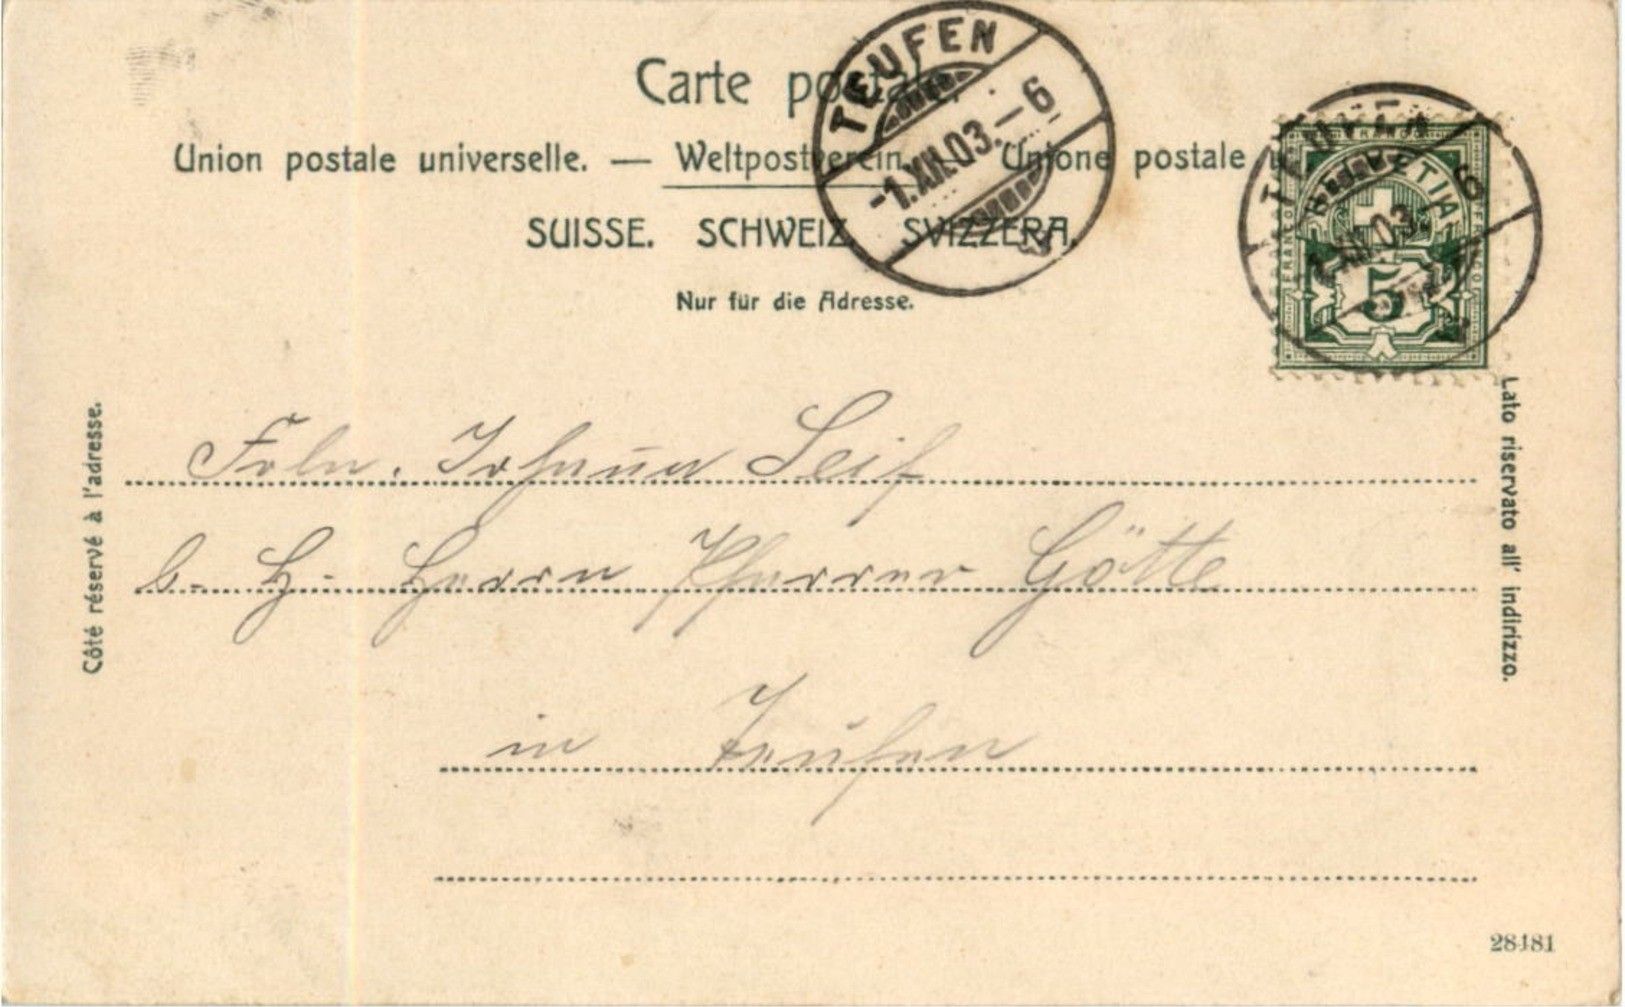 Carte postale.
Union postale universelle. — Weltpostverein. — Unione postale u
SUISSE. SCHWEIZ. SVIZZERA.
Nur für die Adresse.
TEUFEN
-1.XII.03.-6
HELVETIA
FRANCO
5
-1.XII.03.-8
Côté réservé à l'adresse.
Lato riservato all' indirizzo.
Johann Seif
b. H. Herrn Pfarrer Götte
in Teufen
28481